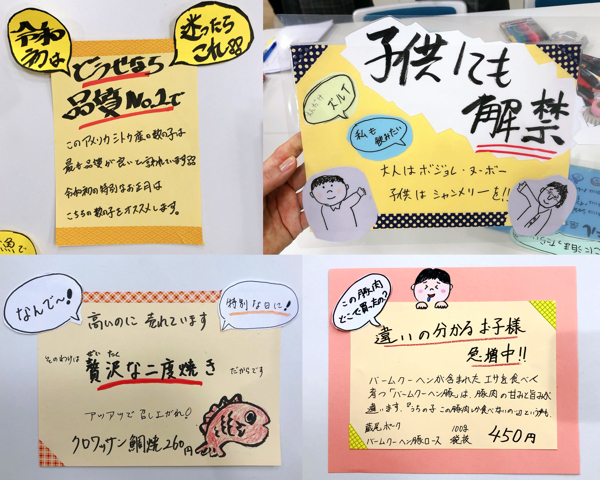 令和
初は
迷ったら
これ!!
どうせなら
品質No.1で
このアメリカシトカ産の数の子は
最も品質が良いと言われています!!
令和初の特別なお正月は
こちらの数の子をオススメします。
魚で
子供にも
解禁
ズルイ
私も飲みたい
大人はボジョレ・ヌ・ボー
子供はシャンメリーを!!
なんで〜!
特別な日に!
高いのに売れています
そのわけは
ぜいたく
贅沢な二度焼き
だからです
アツアツで召し上がれ!
クロワッサン鯛焼260円
この豚肉
どこで買ったの?
違いの分かるお子様
急増中!!
バームクーヘンが含まれたエサを食べて
育つ「バームクーヘン豚」は、豚肉の甘みと旨みが
違います。「うちの子この豚肉しか食べないの…」という声も。
蔵尾ポーク
バームクーヘン豚ロース
100g
税抜
450円